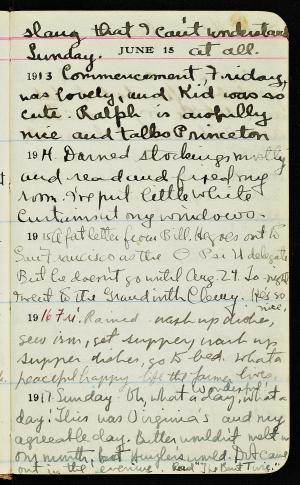 slang that I can't understand
Sunday. JUNE 15 at all.
1913 Commencement, Friday,
was lovely, and Kid was so
cute. Ralph is awfully
nice and talks Princeton
1914. Darned stockings mostly
and read and fixed my
room. I've put little white
curtains at my windows.
1915 A fat letter from Bill. He goes out to
San Francisco as the Psi U delegate
But he doesn't go until Aug. 24. To-night
I went to the Grand with Cleary. He's so
nice,
1916 Fri. Rained wash up dishes,
sew, iron, get supper, wash up
supper dishes, go to bed. What a
peaceful happy life the farmer lives.
1917 Sunday Oh, what a day, what a wonderful
day! This was Virginia's and my
agreeable day. Butter wouldn't melt in
my mouth, but
out in the evening. Read "The Bent Twig."